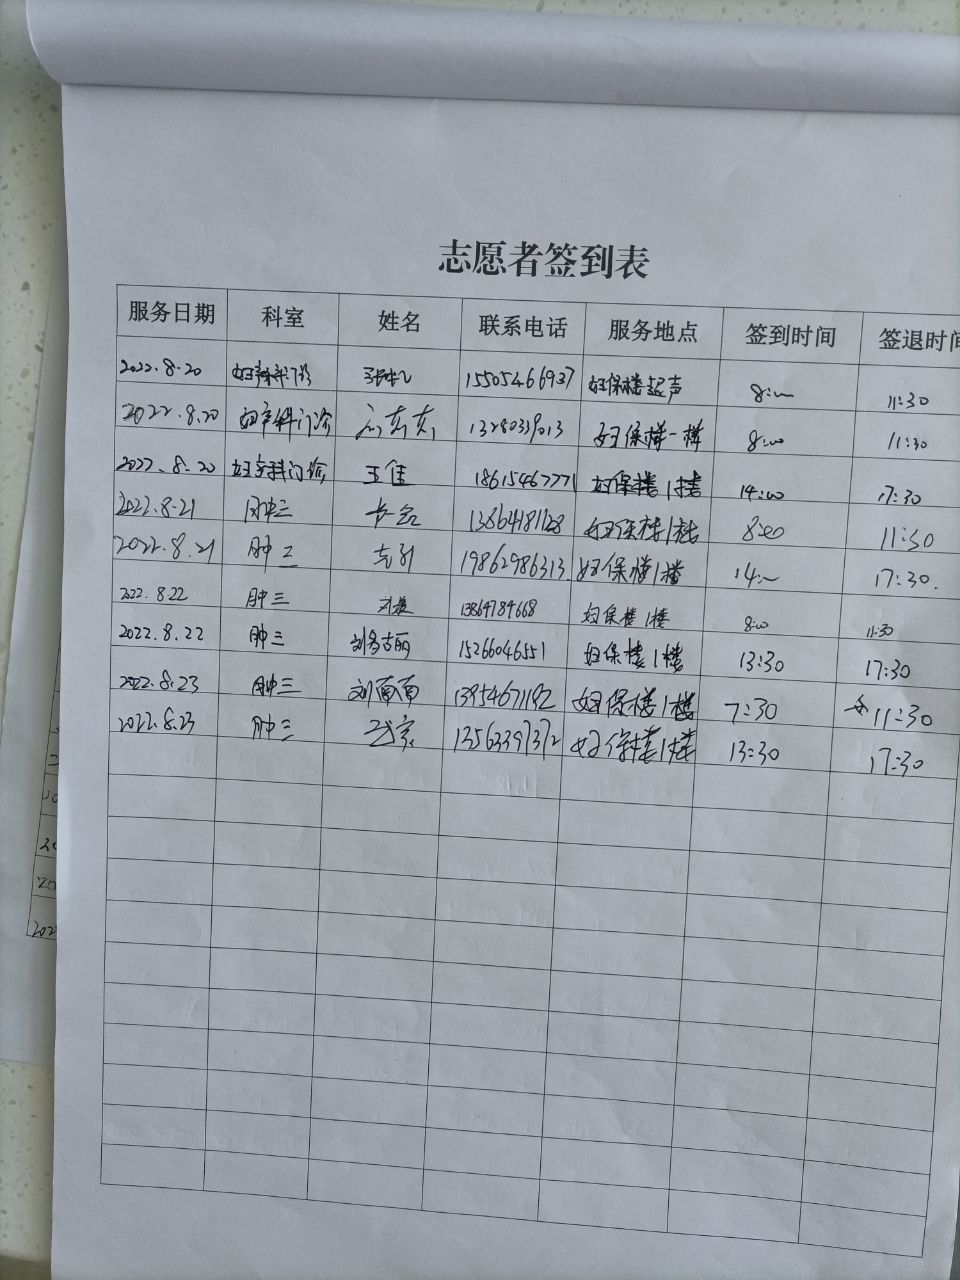 志愿者签到表
服务日期 科室 姓名 联系电话 服务地点 签到时间 签退时间
2022.8.20 妇产科门诊 15505466937 妇保楼超声 8:00 11:30
2022.8.20 妇产科门诊 13280339013 妇保楼一楼 8:00 11:30
2022.8.20 妇产科门诊 王佳 18615467771 妇保楼1楼 14:00 17:30
2022.8.21 肿三 妇保楼1楼 8:00 11:30
2022.8.21 肿三 19862986313 妇保楼1楼 14:00 17:30.
2022.8.22 肿三 妇保楼1楼 8:00 11:30
2022.8.22 肿三 15266046551 妇保楼1楼 13:30 17:30
2022.8.23 肿三 刘面面 13954671192 妇保楼1楼 7:30 11:30
2022.8.23 肿三 13563397372 妇保楼1楼 13:30 17:30